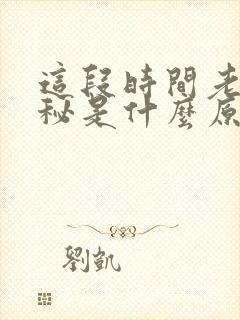 這段時間老
秘是什麼原
劉凱